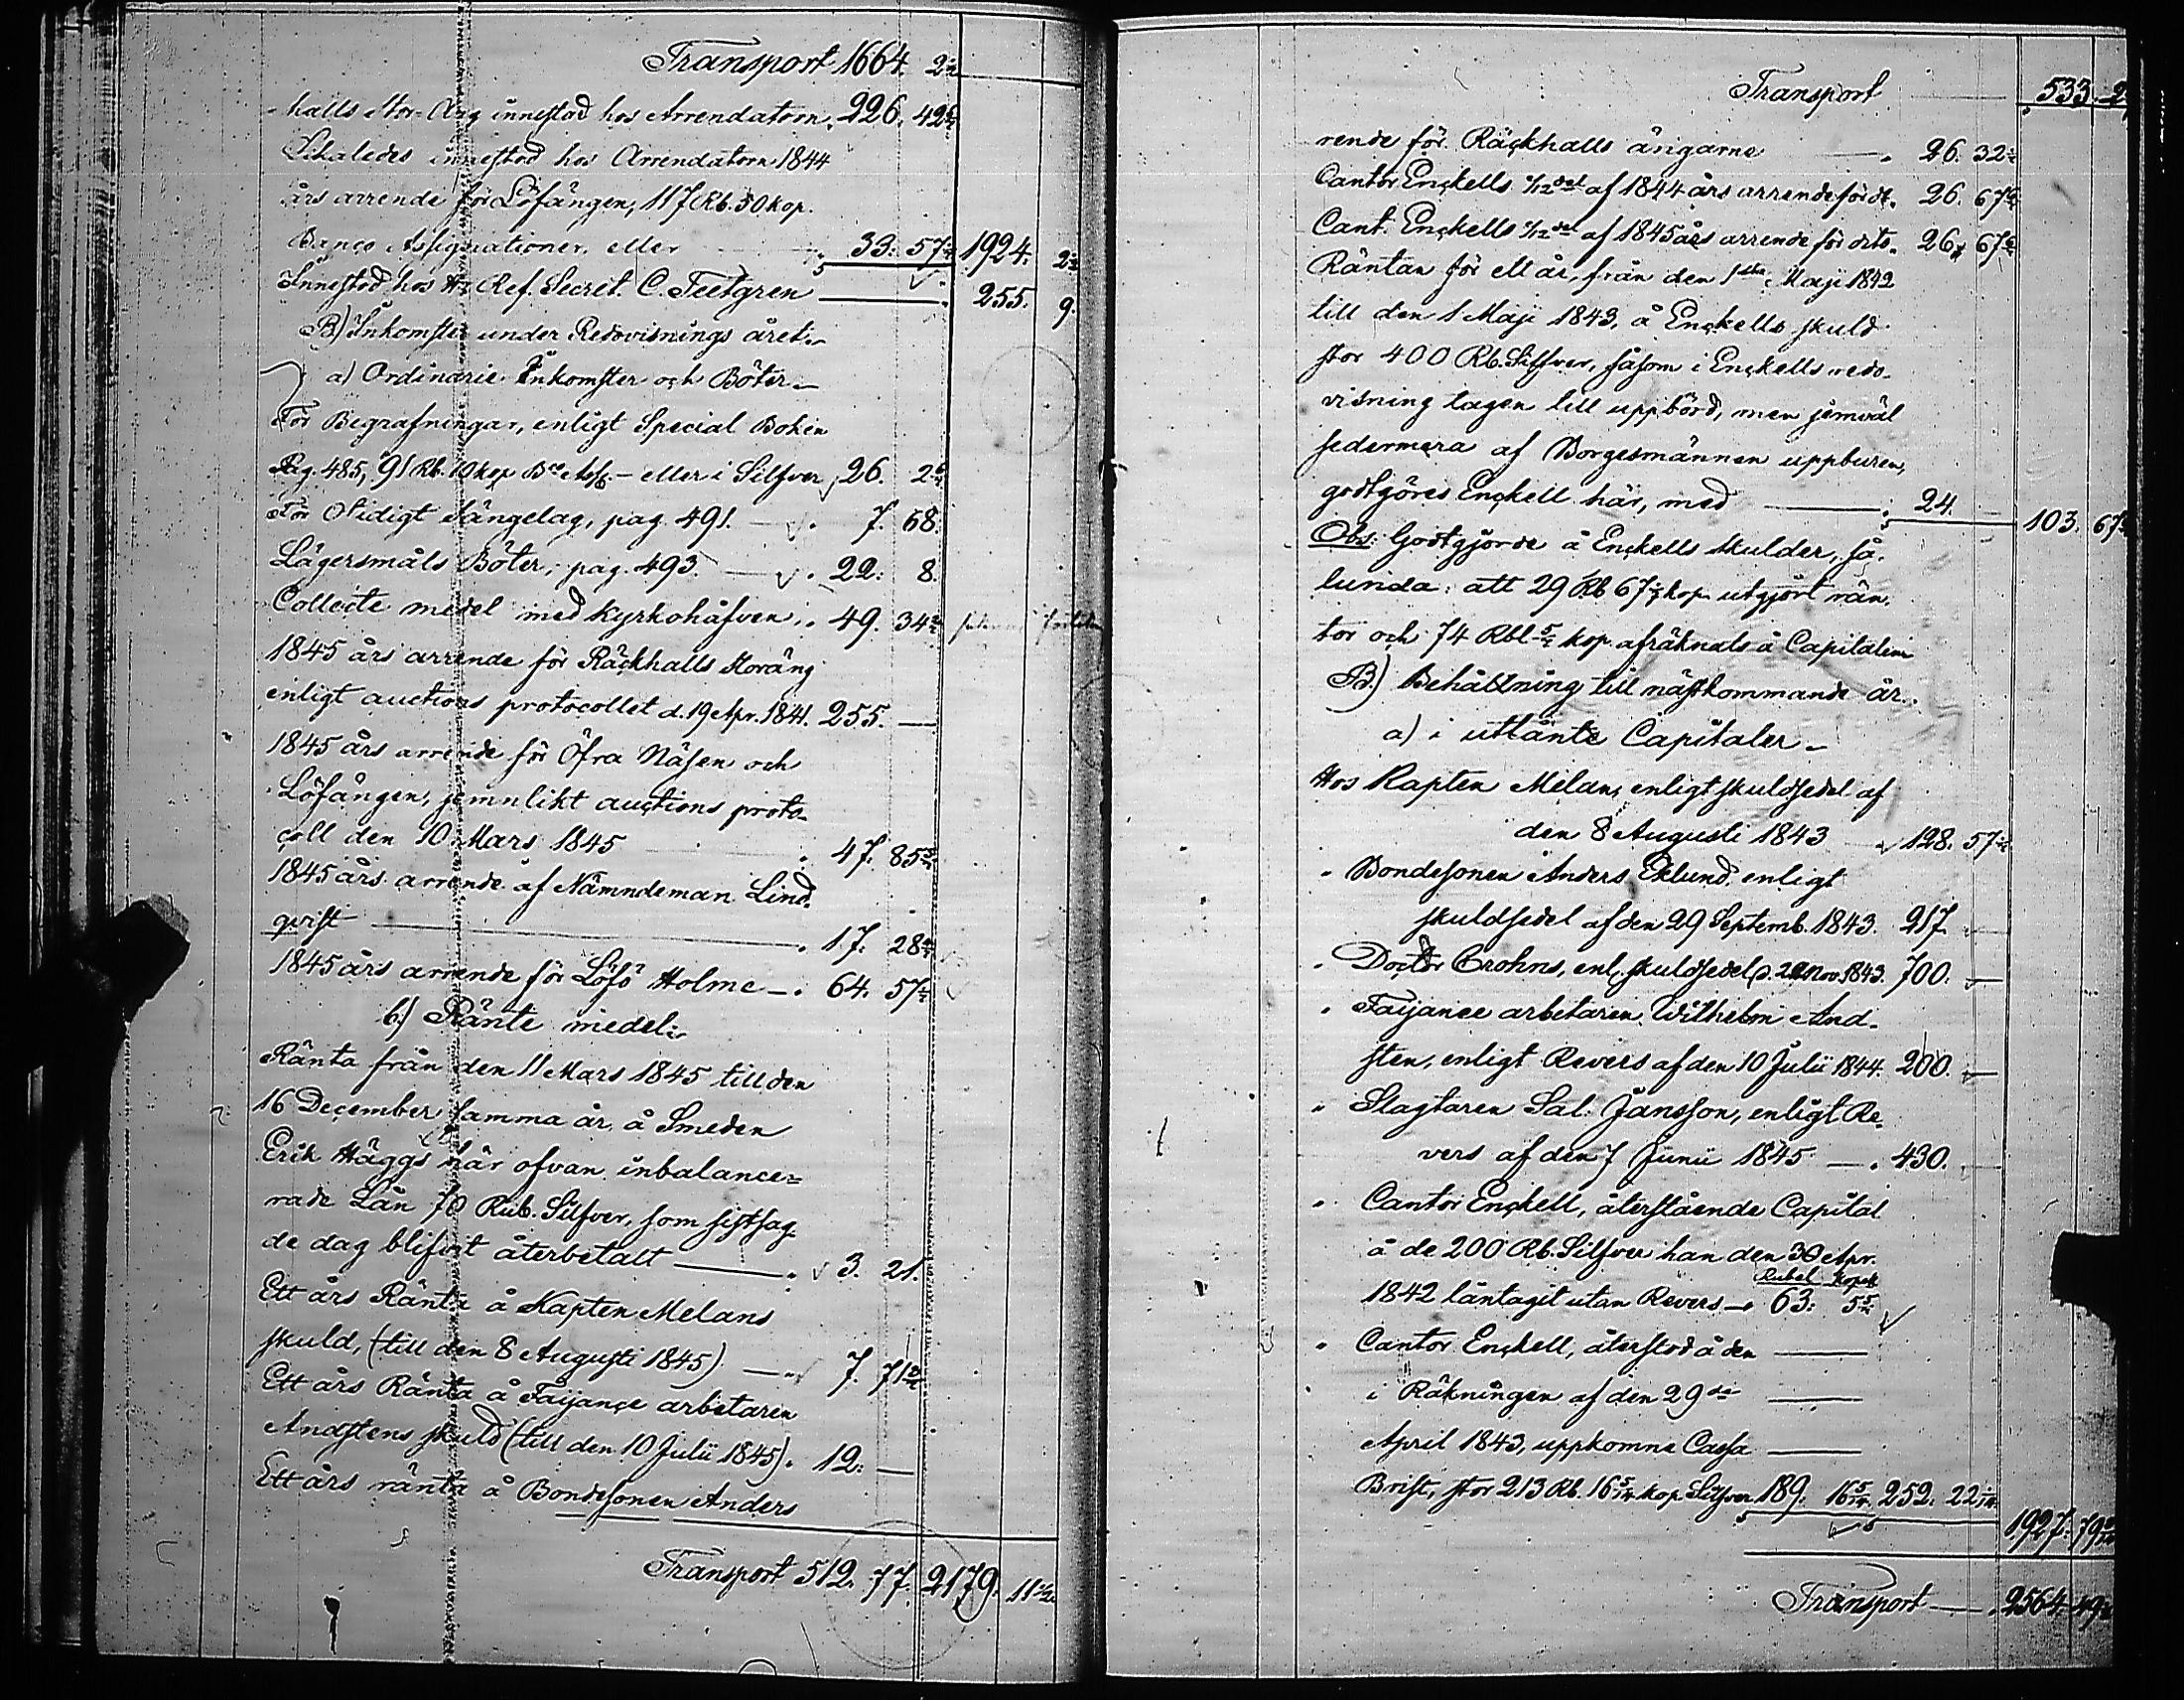 Transport 1664. 2 2/4
halls Stor-Äng innestod hos Arrendatorn. 226. 42 2/4
Likaledes innestod hos Arrendatorn 1844
års arrende för Löfängen, 117 Rb. 50 kop.
Banco Assignationer, eller 33. 57 1924. 2
Innestod hos Hr Ref. Secret. C. Teetgren 255. 9.
B) Inkomster under Redovisnings året:
a) Ordinarie Inkomster och Böter
För Begrafningar, enligt Special Boken
Pag. 485, 91 Rb. 10 kop Bco Ass. – eller i Silfver 26. 2
För Otidigt Sängelag, pag. 491. 7. 68.
Lägersmåls Böter, pag. 493. 22. 8.
Collecte medel med kyrkohåfven 49. 34
1845 års arrende för Räckhalls Storäng
enligt auctions protocollet d. 19 Apr. 1841. 255. —
1845 års arrende för Öfra Näsen och
Löfängen, jemnlikt auctions proto-
coll den 10 Mars 1845 47. 85
1845 års arrende af Nämndeman Lind-
qvist 17. 28
1845 års arrende för Löfö Holme 64. 57
b.) Ränte medel:
Ränta från den 11 Mars 1845 till den
16 December samma år å Smeden
Erik Häggs här ofvan inbalance-
rade Lån 70 Rub. Silfver, som sistsag-
de dag blifvit återbetalt 3. 21.
Ett års Ränta å Kapten Melans
skuld, (till den 8 Augusti 1845) 7. 71
Ett års Ränta å Faijance arbetaren
Andstens skuld (till den 10 Julii 1845). 12. —
Ett års ränta å Bondesonen Anders
Transport 512. 77. 2179. 11
Transport 533. 2
rende för Räckhalls ängarne 26. 32
Cantor Enckells 1/12 del af 1844 års arrende för do. 26. 67
Cant. Enckells 1/12 del af 1845 års arrende för dito. 26. 67
Räntan för ett år, från den 1sta Maji 1842
till den 1 Maji 1843, å Enckells skuld
stor 400 Rb. Silfver, såsom i Enckells redo-
visning tagen till uppbörd, men jemväl
sedermera af Borgesmännen uppburen,
godtgöres Enckell här, med 24. 103. 67
Obs: Godtgjorde å Enckells skulder, så-
lunda: att 29 Rb 67 kop. utgjort rän-
tor och 74 Rbl 5/7 kop. afräknats å Capitalen
B.) Behållning till nästkommande år.
a) i utlånte Capitaler
Hos Kapten Melan, enligt skuldsedel af
den 8 Augusti 1843 128. 57
" Bondesonen Anders Eklund, enligt
skuldsedel af den 29 Septemb. 1843. 217. —
" Doctor Crohns, enl. skuldsedel d. Nov. 1843. 700. —
" Faijance arbetaren Wilhelm And-
sten, enligt Revers af den 10 Julii 1844. 200. —
" Slagtaren Sal. Jansson, enligt Re-
vers af den 7 Junii 1845 430. —
" Cantor Enckell, återstående Capital
å de 200 Rb. Silfver han den 30 Apr.
Rubel Kopek
1842 låntagit utan Revers 63. 5
" Cantor Enckell, återstod å den
i Räkningen af den 29de
April 1843, uppkomne Cassa
Brist, stor 213 Rb. 16 5/14 kop Silfver 189. 16 5/14 252. 22 1/14
1927. 79
Transport 2564. 49